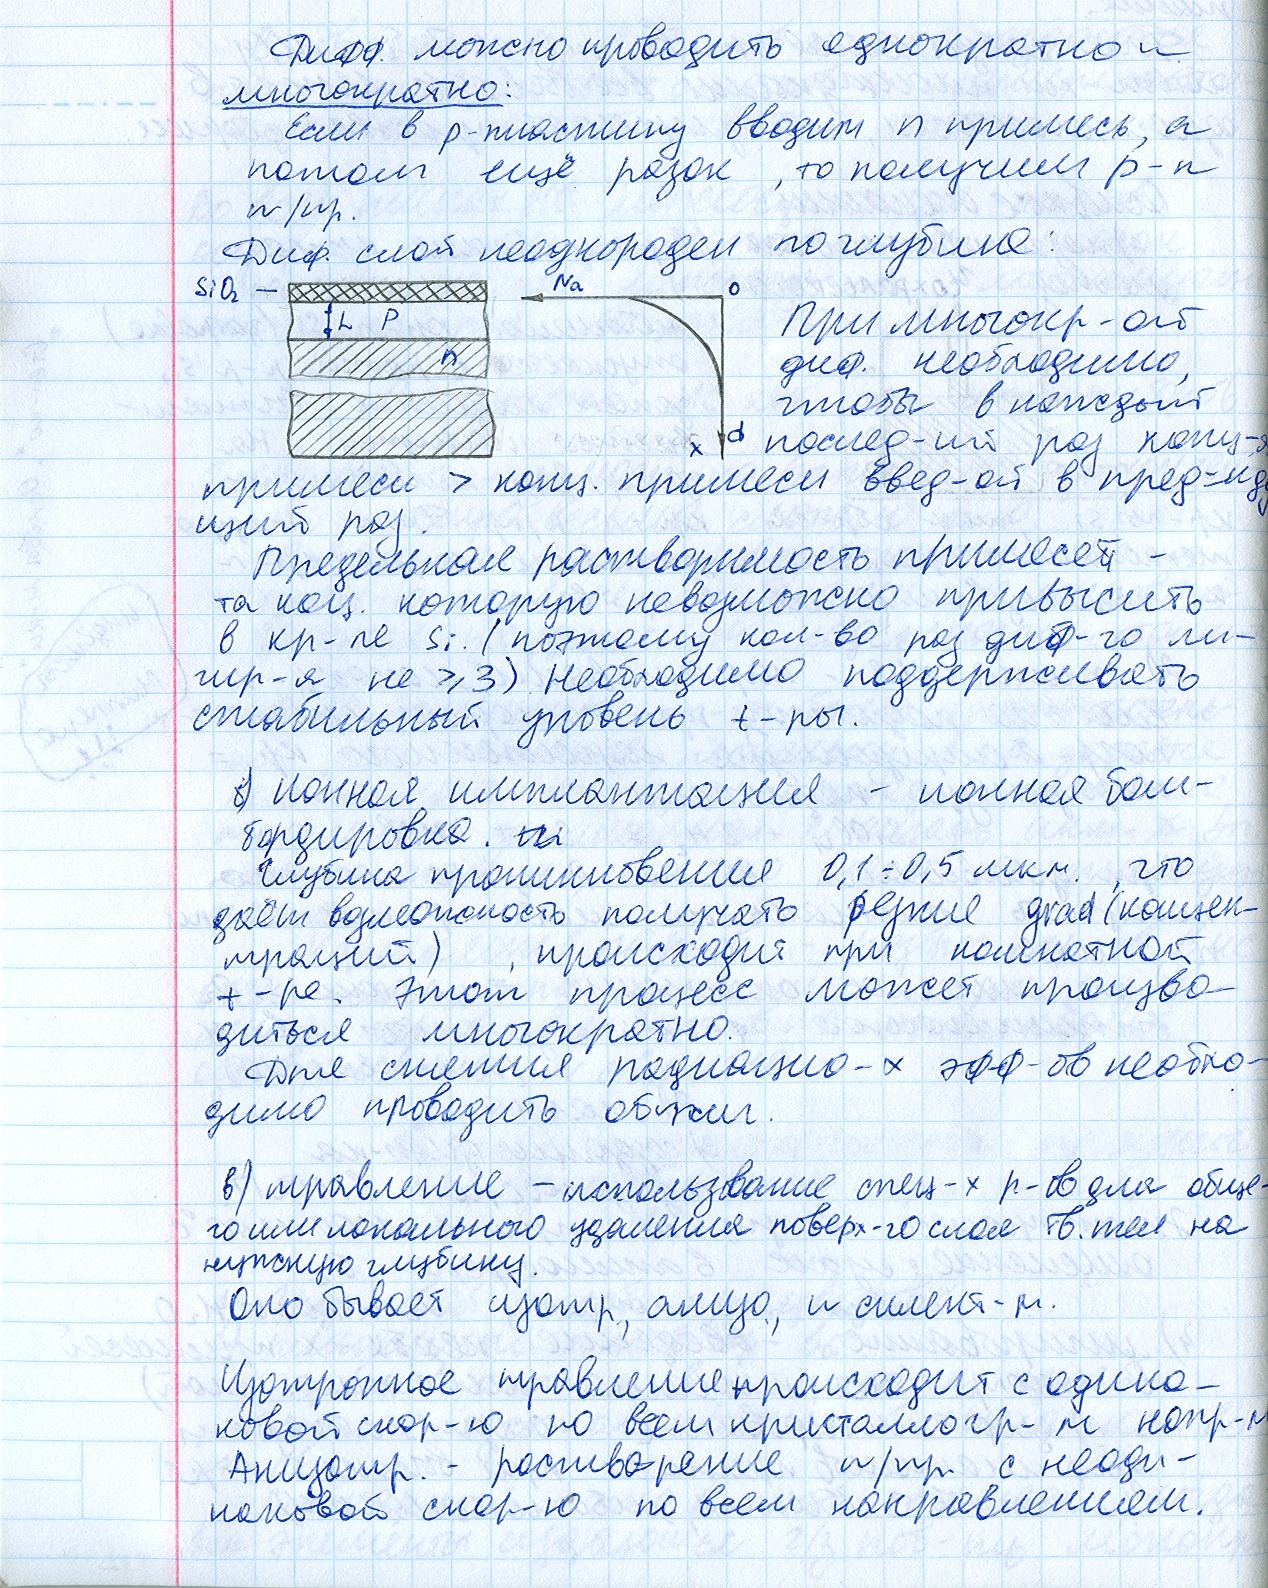 Дифф. можно проводить однократно и
многократно:
Если в p-пластину вводим n примесь, а
потом ещё разок, то получим p-n
п/пр.
Диф. слой неоднороден по глубине:
SiO₂ —
L P
n
Na
0
x
d
При многокр-ой
диф. необходимо,
чтобы в каждый
послед-ий раз конц-я
примеси > конц. примеси введ-ой в пред-иду
щий раз.
Предельная растворимость примесей -
та конц. которую невозможно привысить
в кр-ле Si. (поэтому кол-во раз диф-го ли-
гир-я не ⩾3) Необходимо поддерживать
стабильный уровень t-ры.
б) Ионная имплантация - ионная бом-
бордировка.
Глубина проникновения 0,1÷0,5 мкм., что
даёт возможность получать резкие grad (концен-
траций), происходит при комнатной
t-ре. Этот процесс может произво-
диться многократно.
Для снятия радиацио-х эфф-ов необхо-
димо проводить обжиг.
в) травление - использование спец-х р-ов для обще-
го или локального удаления поверх-го слоя тв. тел на
нужную глубину.
Оно бывает изотр., анизо., и силект-м.
Изотропное травление происходит с одина-
ковой скор-ю по всем кристаллогр-м напр-м
Анизотр. - растворение п/пр. с неоди-
наковой скор-ю по всем направлениям.